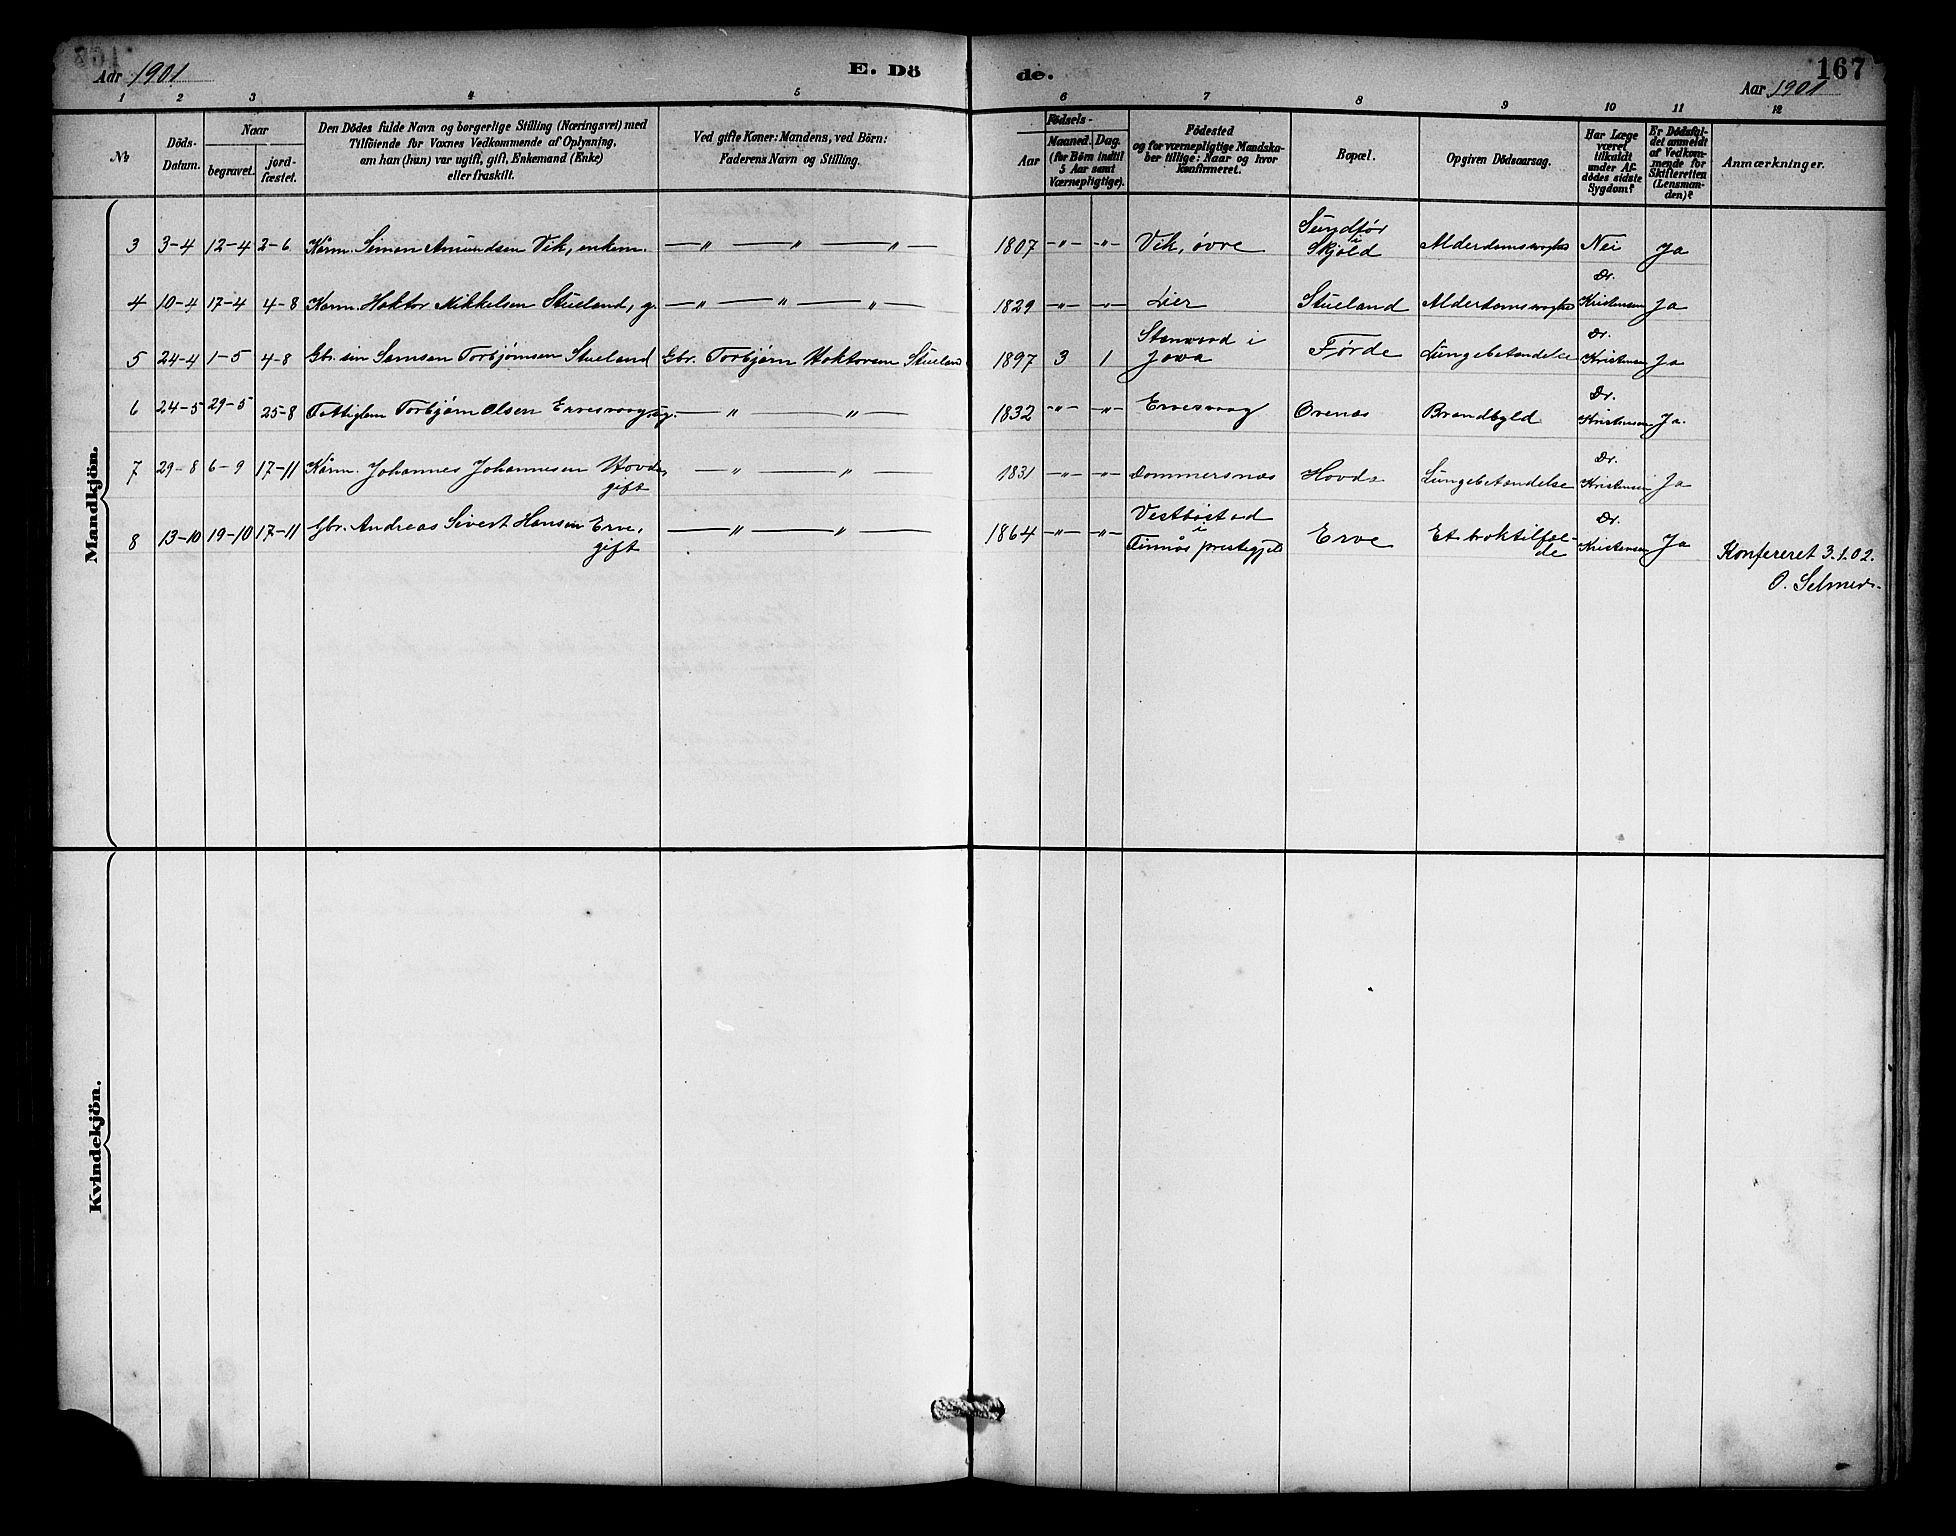 Aar 1901
E. Dö
de.
167
Aar 1901
1 2 3 4 5 6 7 8 9 10 11 12
No
Döds-
Datum.
Naar
begravet.
jord-
fæstet.
Den Dödes fulde Navn og borgerlige Stilling (Næringsvei) med
Tilföiende for Voxnes Vedkommende af Oplysning,
om han (hun) var ugift, gift, Enkemand (Enke)
eller fraskilt.
Ved gifte Koner: Mandens, ved Börn:
Faderens Navn og Stilling.
Födsels-
Aar
Maaned. Dag.
(for Börn indtil
5 Aar samt
Værnepligtige).
Födested
og for værnepligtige Mandska-
ber tillige: Naar og hvor
konfirmeret.
Bopæl.
Opgiven Dödsaarsag.
Har Læge
været
tilkaldt
under Af-
dödes sidste
Sygdom?
Er Dödsfal-
det anmeldt
af Vedkom-
mende for
Skifteretten
(Lensman-
den)?
Anmærkninger.
Mandkjön.
3 3-4 12-4 2-6 Kårm. Simon Amundsen Vik, enkem. — " — " — " — 1807 -"- -"- Vik, øvre Sundfør i Skjold Alderdomssvaghed Nei Ja
4 10-4 17-4 4-8 Kårm. Haktor Mikkelsen Stueland, g. — " — " — " — 1829 -"- -"- Lier Stueland Alderdomssvaghed Dr. Kristensen Ja
5 24-4 1-5 4-8 Gbr. søn Samson Torbjørnsen Stueland Gbr. Torbjørn Haktorsen Stueland 1897 3 1 Stanward i Jowa Førde Lungebetændelse Dr. Kristensen Ja
6 24-5 29-5 25-8 Fattiglem Torbjørn Olsen Ervesvaag, ug. — " — " — 1832 -"- -"- Ervesvaag Ovenas Brandbyld Dr. Kristensen Ja.
7 29-8 6-9 17-11 Kårm. Johannes Johannesen Hovda, gift — " — " — 1831 -"- -"- Dommersnæs Hovda Lungebetændelse Dr. Kristensen Ja
8 13-10 19-10 17-11 Gbr. Andreas Sivert Hansen Erve, gift — " — " — 1864 -"- -"- Vestbøstad i prestegjeld Erve Et Dr. Kristensen Ja
Konfereret 3.1.02.
O. Selmer.
Kvindekjön.